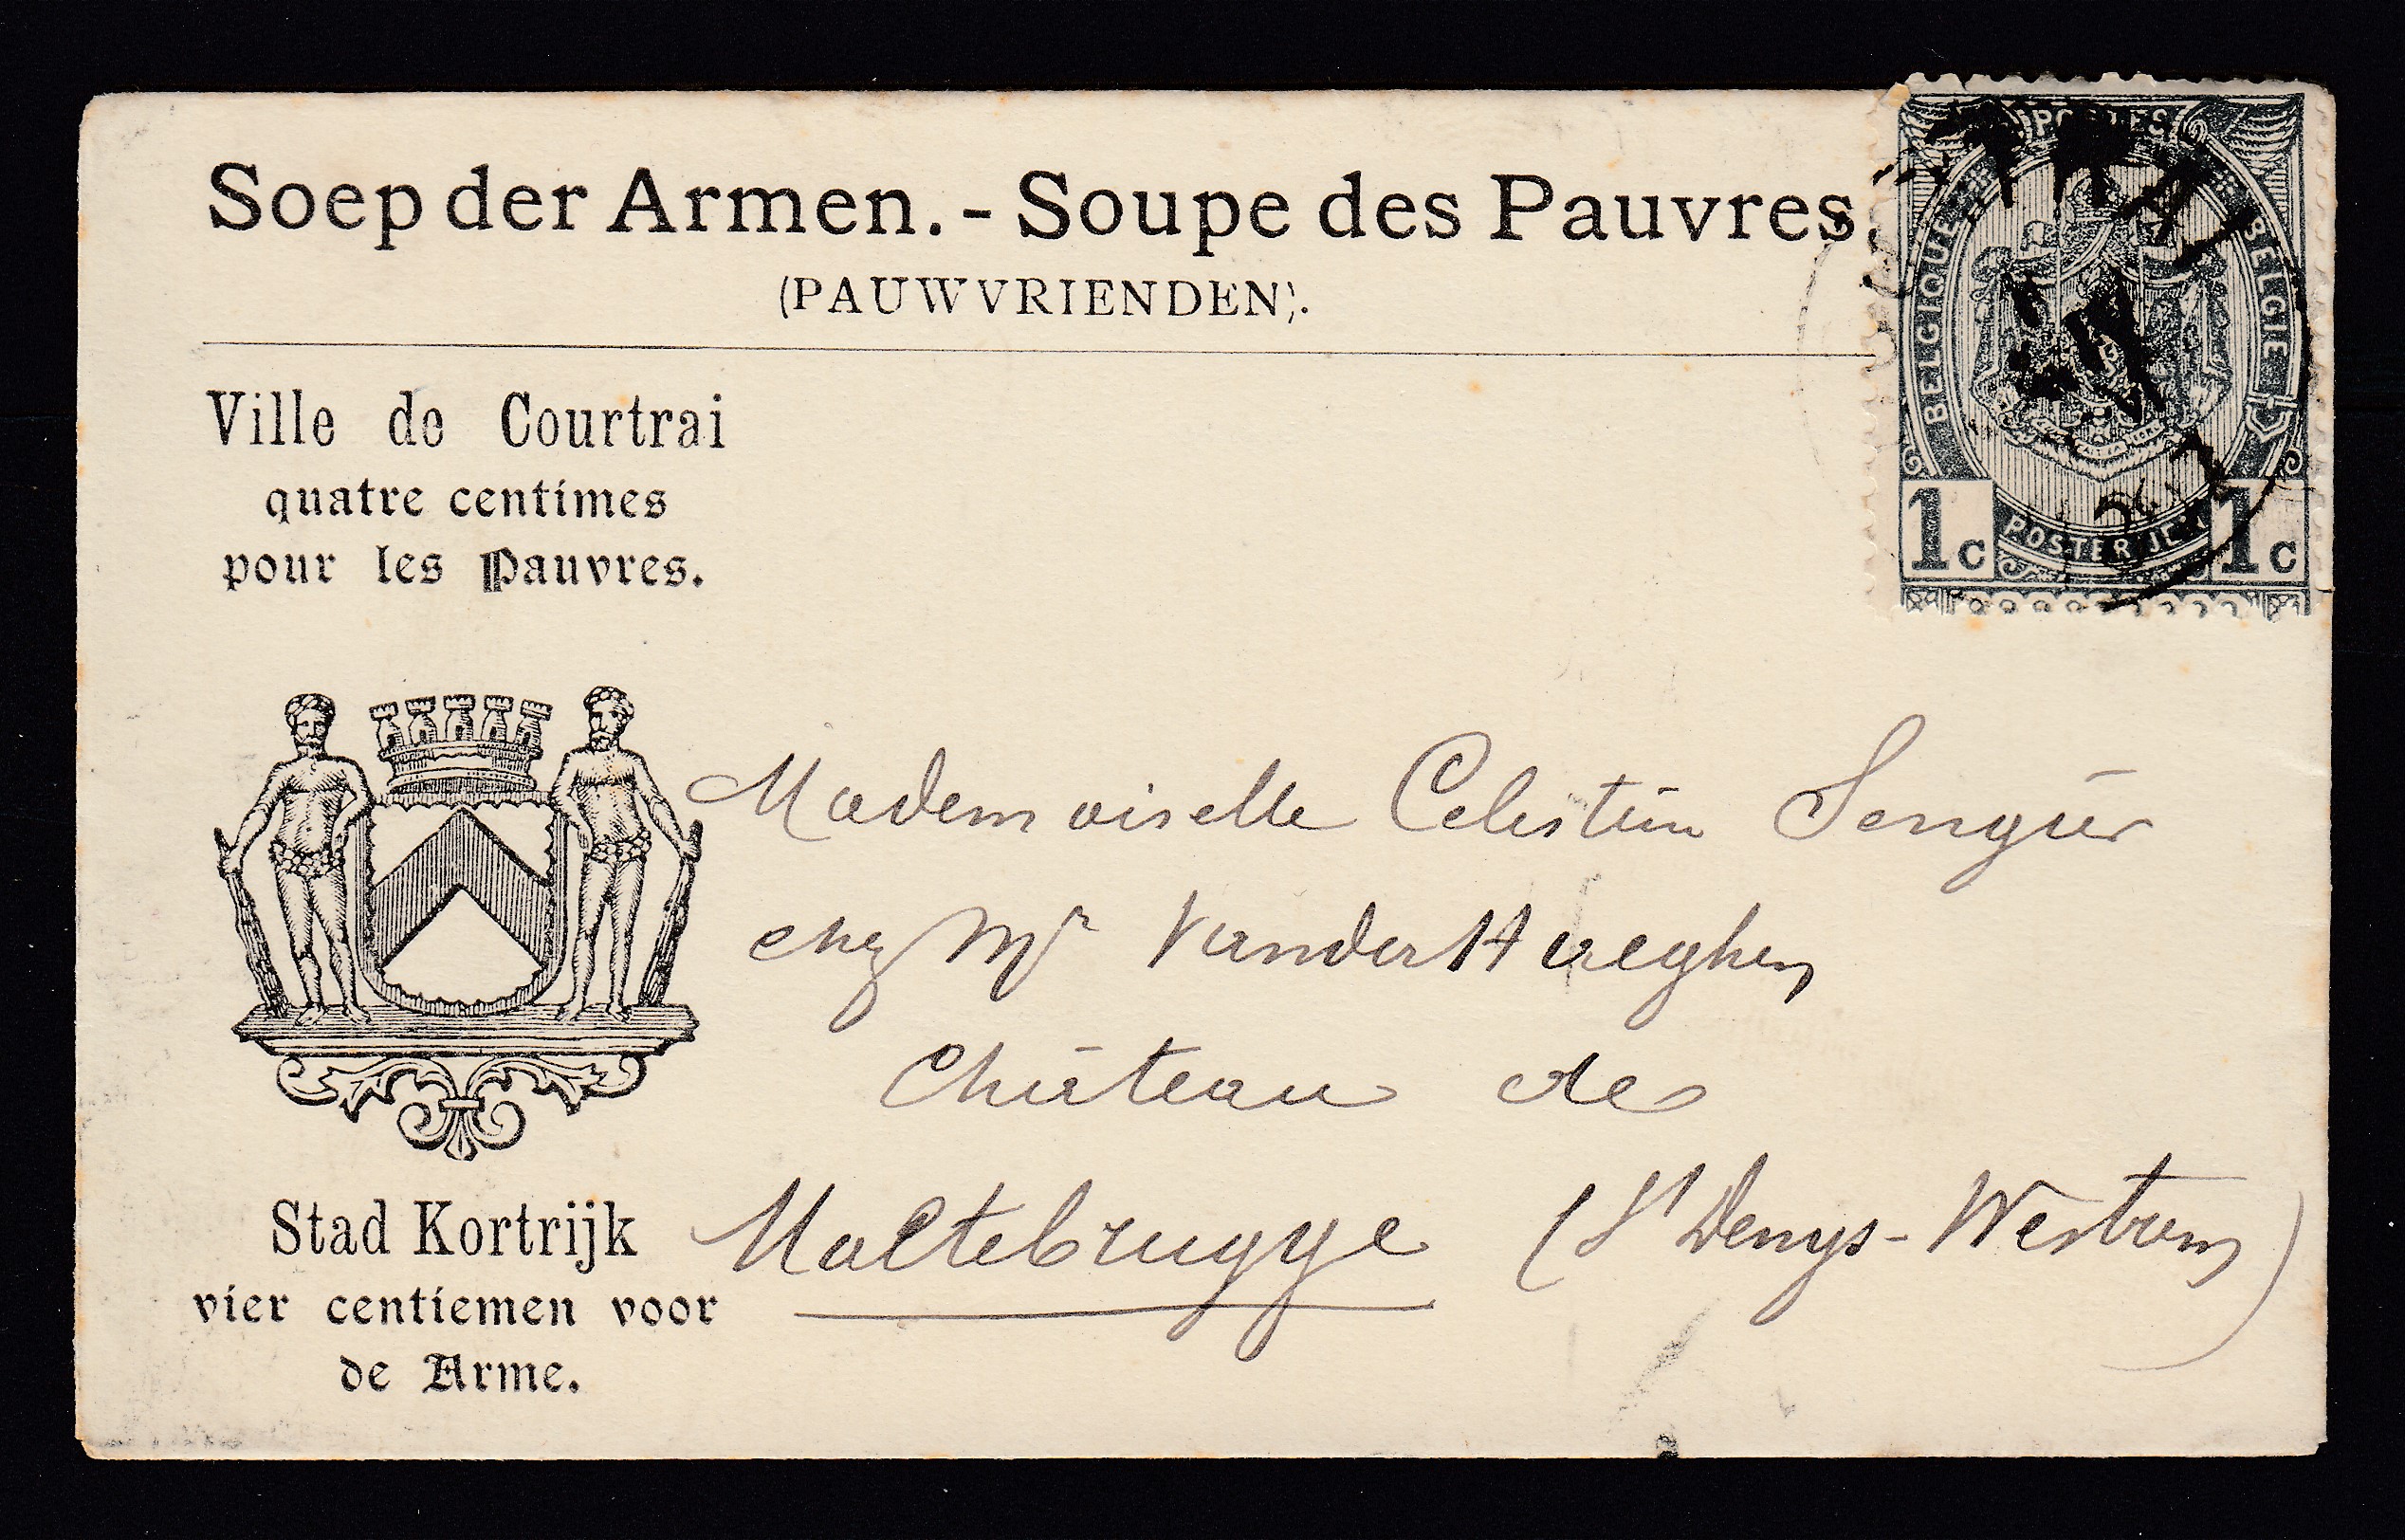 Soep der Armen. - Soupe des Pauvres.
(PAUWVRIENDEN).
POSTES
BELGIQUE
BELGIE
1c
POSTERIJEN
1c
Ville de Courtrai
quatre centimes
pour les Pauvres.
Mademoiselle Celestin
chez Mr VanderHaeghen
Château de
Maltebrugge (St Denys-Westrem)
Stad Kortrijk
vier centiemen voor
de Arme.